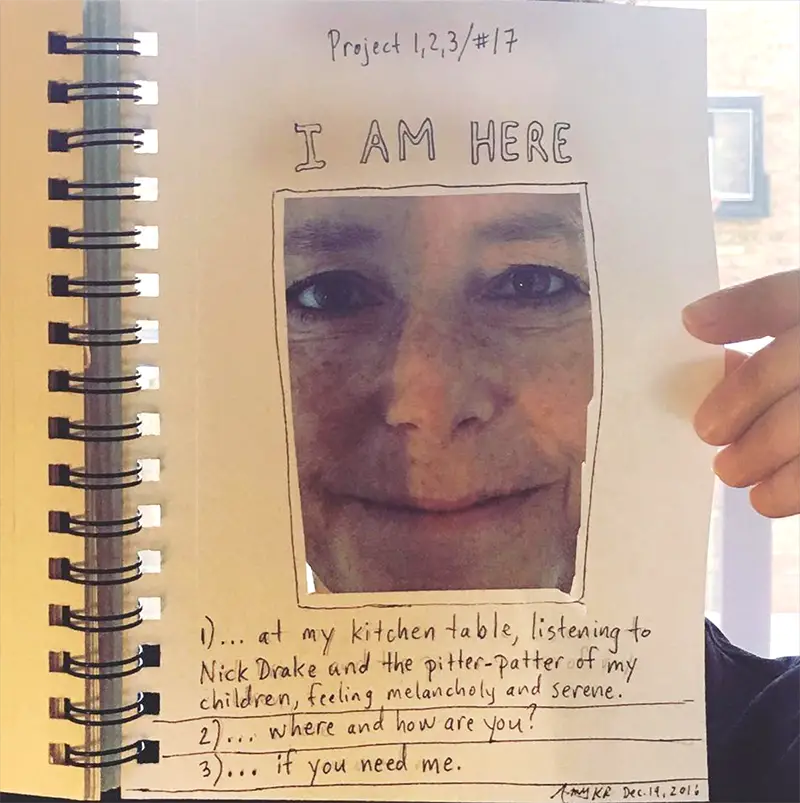 Project 1,2,3/#17
I AM HERE
1)... at my kitchen table, listening to
Nick Drake and the pitter-patter of my
children, feeling melancholy and serene.
2)... where and how are you?
3)... if you need me.
AmyKR Dec. 19, 2016